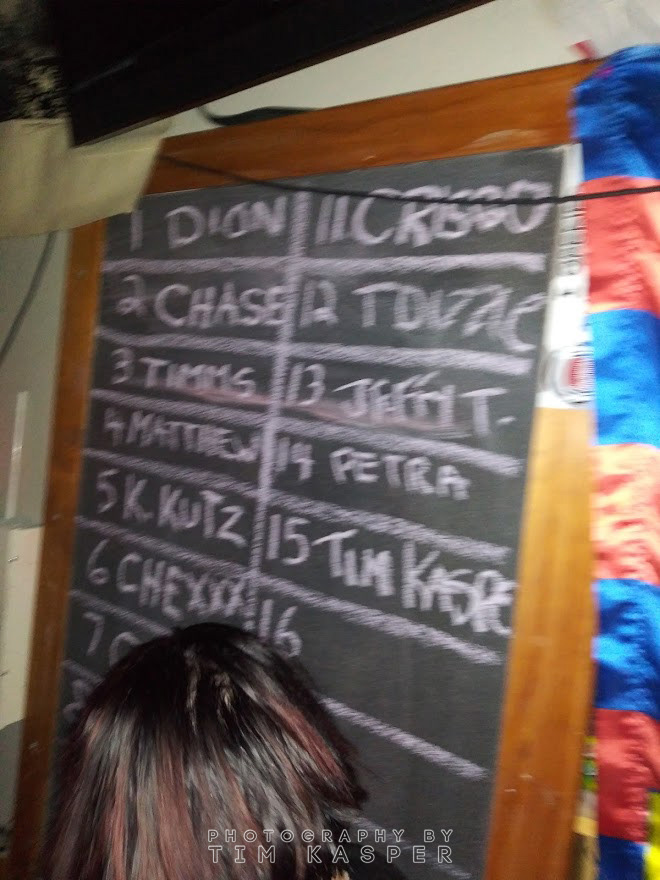 1 DION
2 CHASE
3 TIMMS
4 MATTHEW
5 K. KUTZ
6 CHEXXX
7
11 CRISCO
12
13 T.
14 PETRA
15 TIM KASPE
16
PHOTOGRAPHY BY
TIM KASPER